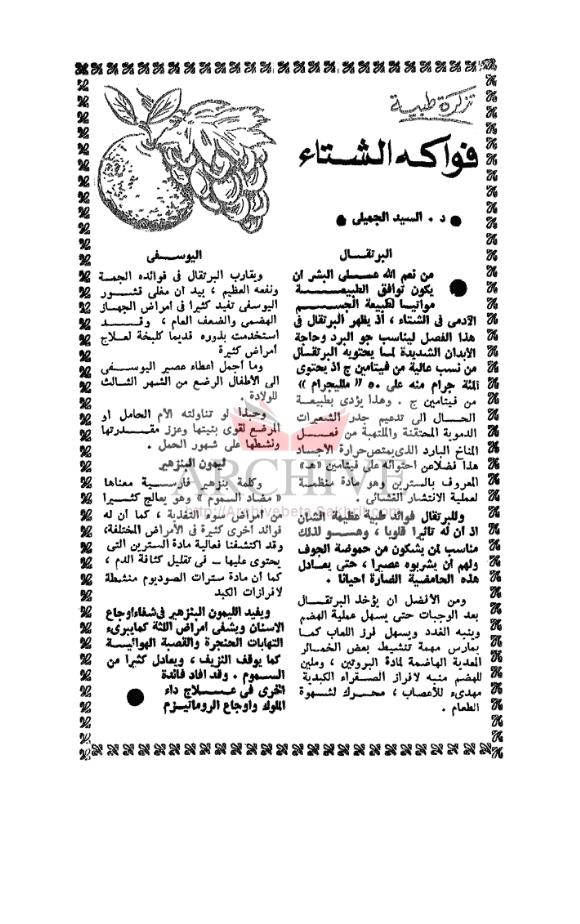 تذكرة طبية
فواكه الشتاء
د . السيد الجميلى
البرتقال
من نعم الله عملى البشر ان
يكون توافق الطبيعة
مواتيا لطبيعة الجسم
الآدمى فى الشتاء ، اذ يظهر البرتقال فى
هذا الفصل ليناسب جو البرد وحاجة
الأبدان الشديدة لما يحتويه البرتقال
من نسب عالية من فيتامين ج اذ يحتوى
المئة جرام منه على ٥٠ « ملليجرام »
من فيتامين ج . وهذا يؤدى بطبيعة
الحال الى تدعيم جدر الشعيرات
الدموية المحتقنة والملتهبة من فعل
المناخ البارد الذى يمتص حرارة الأجساد
هذا فضلا عن احتوائه على فيتامين «هـ»
المعروف بالسترين وهو مادة منظمة
لعملية الانتشار الغشائى .
وللبرتقال فوائد طبية عظيمة الشأن
اذ أن له تأثيرا قلويا ، وهو لذلك
مناسب لمن يشكون من حموضة الجوف
ولهم أن يشربوه عصيرا ، حتى يعادل
هذه الحامضية الضارة أحيانا .
ومن الأفضل ان يؤخذ البرتقال
بعد الوجبات حتى يسهل عملية الهضم
وينبه الغدد ويسهل فرز اللعاب كما
يمارس مهمة تنشيط بعض الخمائر
المعدية الهاضمة لمادة البروتين ، وملين
للهضم منبه لافراز الصفراء الكبدية
مهدىء للأعصاب ، محرك لشهوة
الطعام .
اليوسفى
ويقارب البرتقال فى فوائده الجمة
ونفعه العظيم ، بيد ان مغلى قشور
اليوسفى تفيد كثيرا فى امراض الجهاز
الهضمى والضعف العام ، وقد
استخدمت بذوره قديما كلبخة لعلاج
أمراض كثيرة
وما أجمل اعطاء عصير اليوسفى
الى الأطفال الرضع من الشهر الثالث
للولادة .
وحبذا لو تناولته الأم الحامل أو
المرضع لقوى بنيتها وعزز مقدرتها
ونشطها على شهور الحمل .
ليمون البنزهير
وكلمة بنزهير فارسية معناها
« مضاد السموم » وهو يعالج كثيرا
من أمراض سوء التغذية ، كما أن له
فوائد أخرى كثيرة فى الأمراض المختلفة،
وقد اكتشفنا فعالية مادة السترين التى
يحتوى عليها - فى تقليل كثافة الدم ،
كما أن مادة سترات الصوديوم منشطة
لافرازات الكبد
ويفيد الليمون البنزهير فى شفاء أوجاع
الأسنان ويشفى أمراض اللثة كما يبرىء
التهابات الحنجرة والقصبة الهوائية
كما يوقف النزيف ، ويعادل كثيرا من
السموم . وقد أفاد فائدة
أخرى فى علاج داء
الملوك وأوجاع الروماتيزم
ARCHIVE
http://Archivebeta.Sakhrit.com